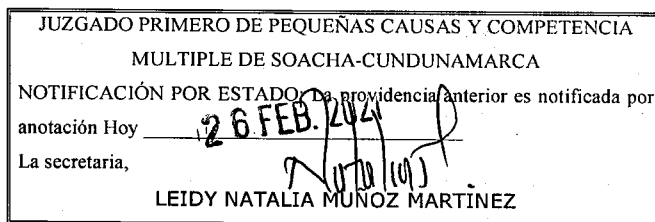 JUZGADO PRIMERO DE PEQUEÑAS CAUSAS Y COMPETENCIA
MULTIPLE DE SOACHA-CUNDUNAMARCA
NOTIFICACIÓN POR ESTADO: La providencia anterior es notificada por
anotación Hoy 26 FEB. 2021
La secretaria,
LEIDY NATALIA MUÑOZ MARTÍNEZ